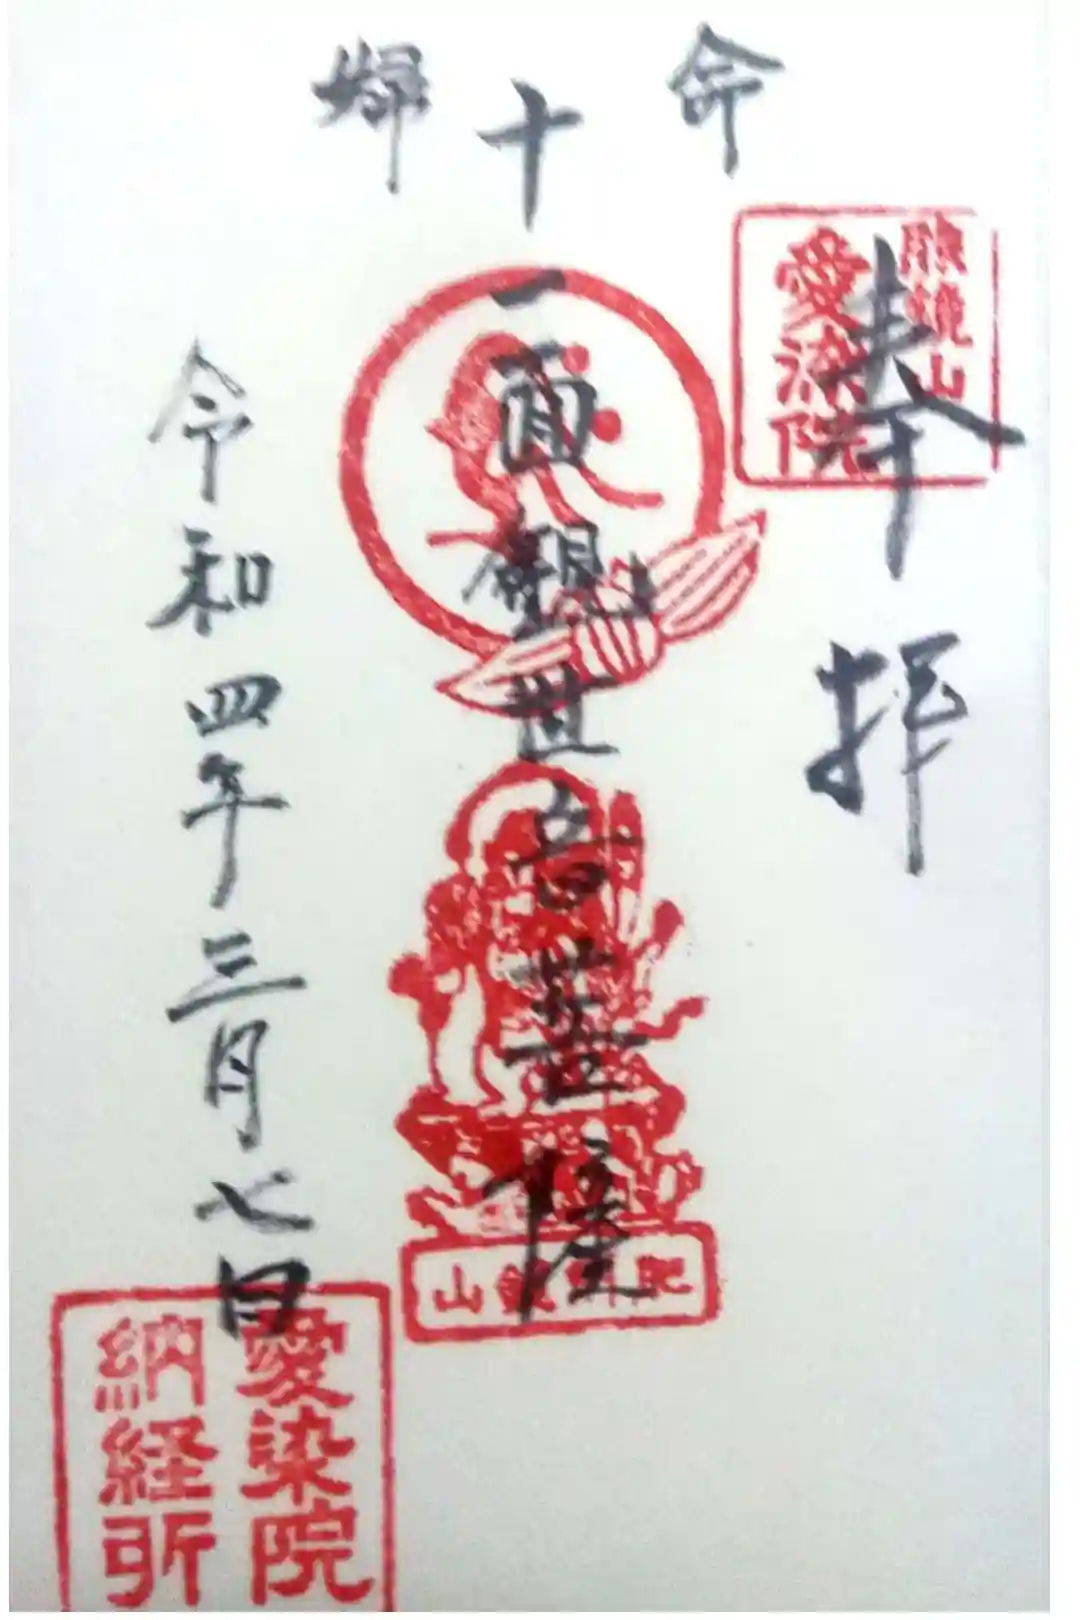 奉拝
命
帰
十一面観世音菩薩
令和四年三月七日
愛染院
愛染院
納経所